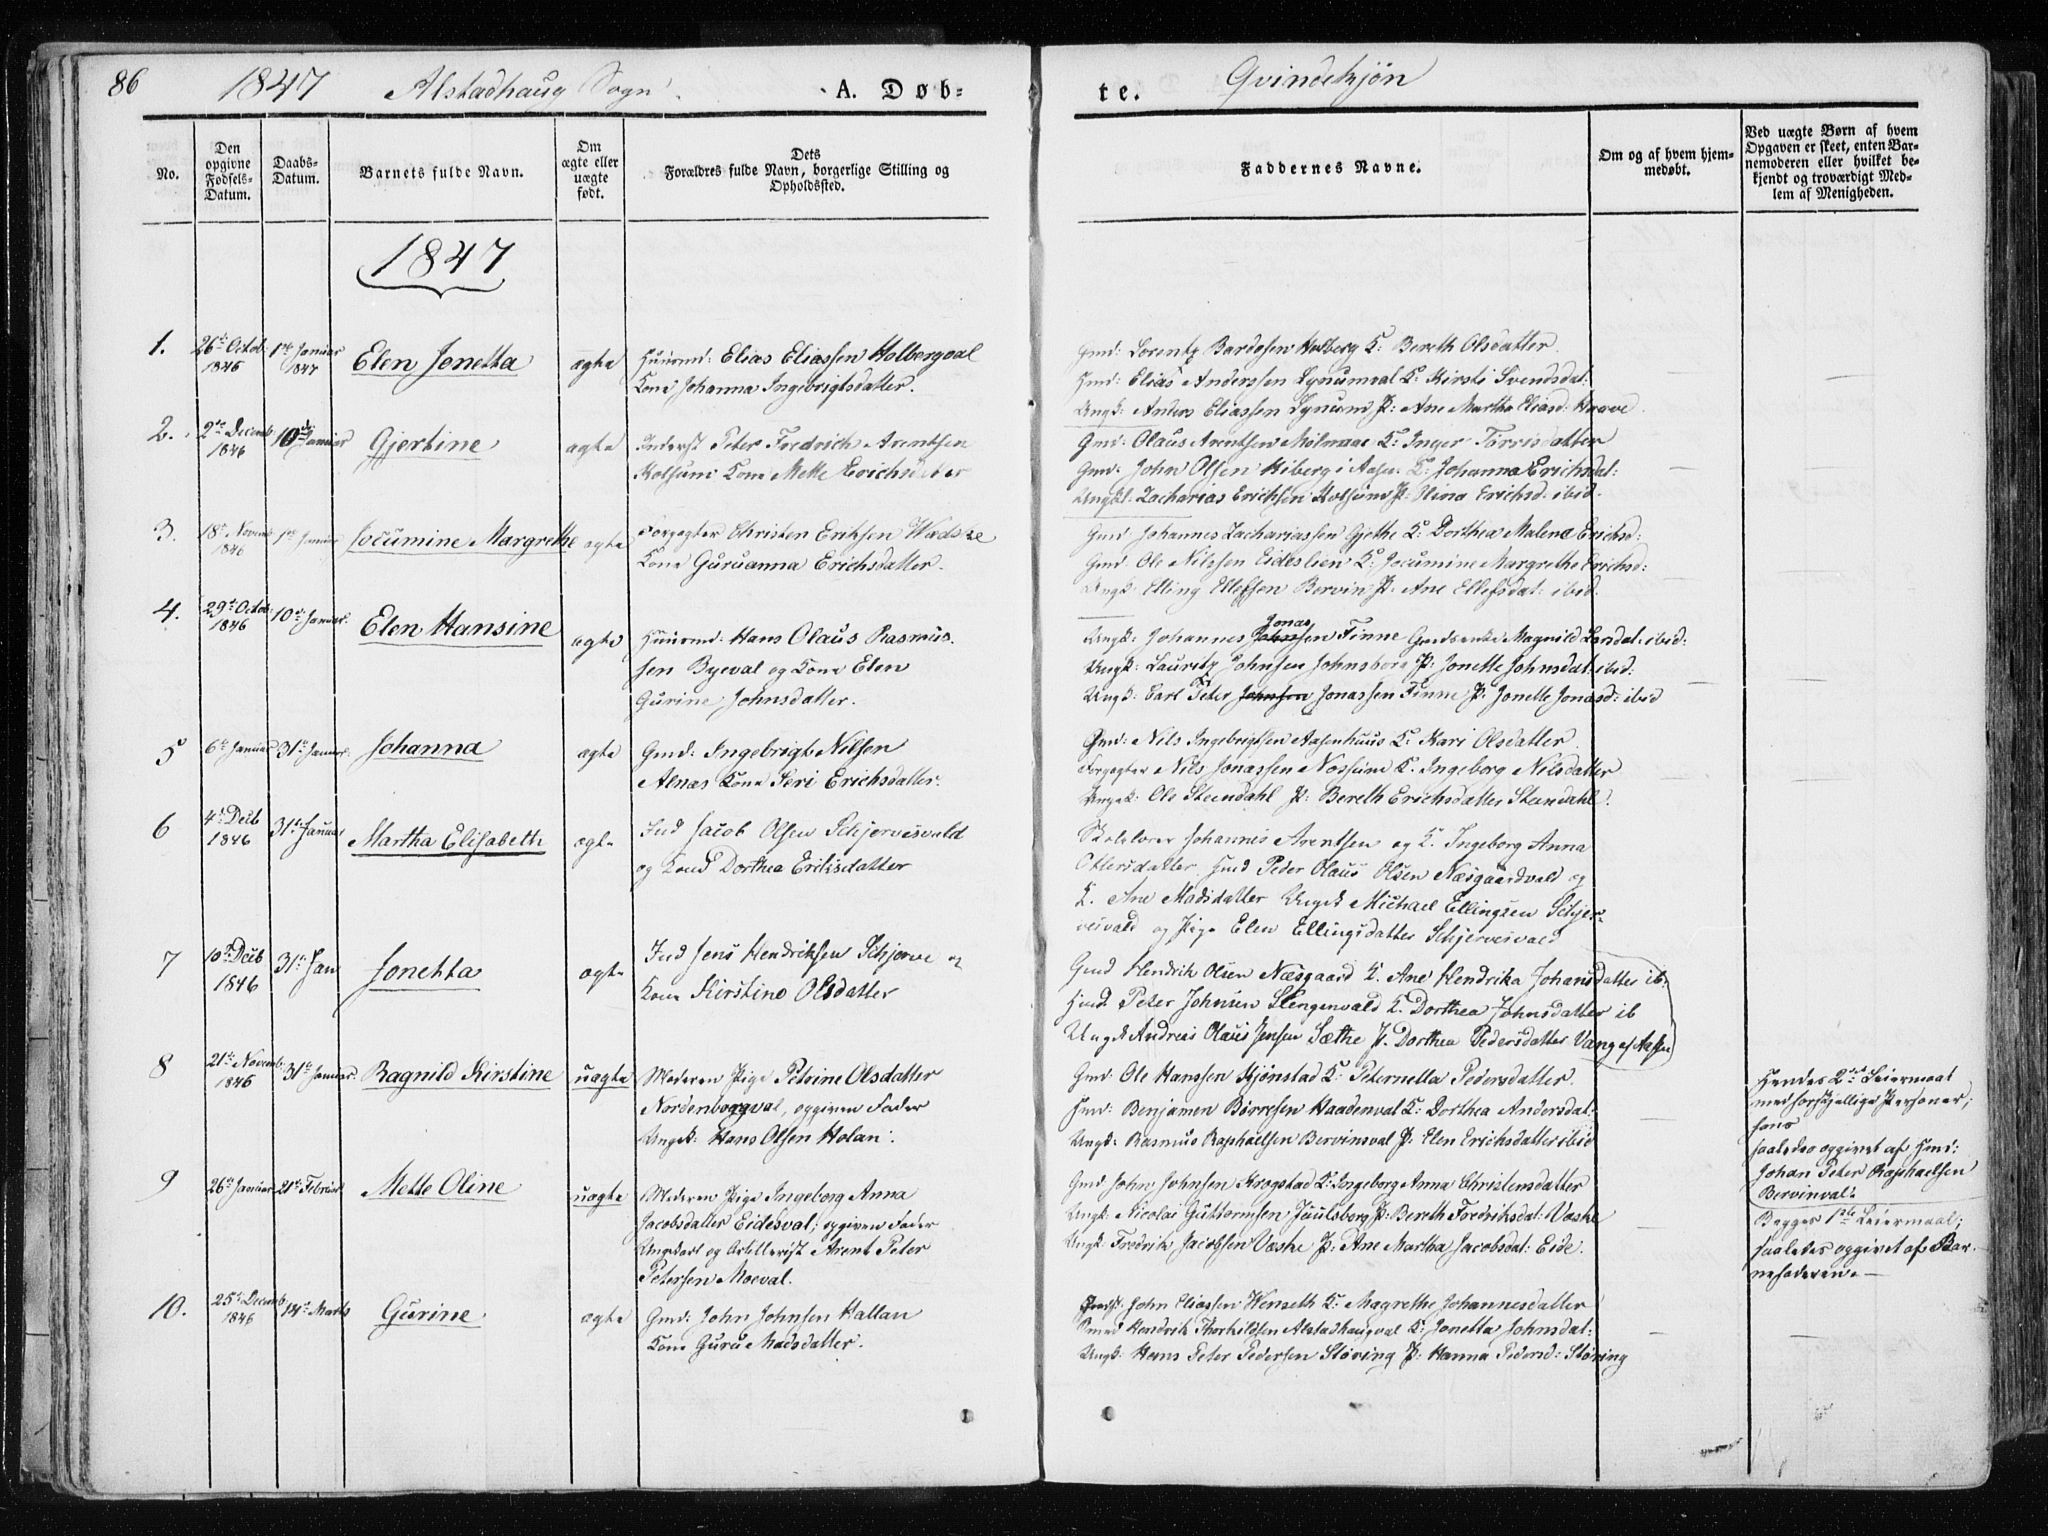 86 1847 Alstadhaug Sogn. A. Døb-
te. Qvindekjøn
No.
Den opgivne Fødsels-Datum.
Daabs-Datum.
Barnets fulde Navn.
Om ægte eller uægte født.
Dets Forældres fulde Navn, borgerlige Stilling og Opholdssted.
Faddernes Navne.
Om og af hvem hjem-
medøbt.
Ved uægte Børn af hvem
Opgaven er skeet, enten Bar-
nemoderen eller hvilket be-
kjendt og troværdigt Med-
lem af Menigheden.
1847
1. 26de Octob: 1846 1ste Januar 1847 Elen Jonetta ægte
Huusmd: Elias Eliassen Holbergval
Kone Johanna Ingebrigtsdatter.
Gmd: Lorentz Bardosen Holberg K: Bereth Olsdatter.
Hmd: Elias Anderssen Lynumval K: Kirsti Svendsdat:
Ungk: Anders Eliassen Lynum P: Ane Martha Eliasd: Haave.
2. 2de Decemb: 1846 10de Januar Gjertine ægte
Inderst Peter Fredrich Arentsen
Holsum Kone Mette Erichsdatter
Gmd: Olaus Arentsen Molmaae K: Inger Torrisdatter
Gmd: John Olsen Hiberg i Aasen K: Johanna Erichsdat:
Ungk: Zacharias Erichsen Holsum P: Olina Erichsd: ibid.
3. 18de Novemb 1846 1ste Januar Jocumine Margrethe ægte
Forpagter Christen Eriksen Wadske
Kone Guruanna Erichsdatter.
Gmd: Johannes Zachariassen Gjethe K: Dorthea Malena Erichsd:
Gmd: Ole Nilssen Eideslien K: Jocumine Margrethe Erichsd:
Ungk: Elling Ellefsen Bervin P: Ane Ellefsdat: ibid.
4. 29de Octob: 1846 10de Januar. Elen Hansine ægte
Huusmd: Hans Olaus Rasmus-
sen Byeval og Kone Elen
Gurine Johnsdatter.
Jonas
Ungk: Johannes Johnsen Finne Magnild Londal: ibid:
Ungk: Lauritz Johnsen Johnsborg P: Jonette Johnsdat: ibid:
Ungk: Carl Peter Johnsen Jonassen Finne P: Jonette Jonasd: ibid
5 6te Januar 31te Januar. Johanna ægte
Gmd: Ingebrigt Nilsen
Alnas Kone Seri Erichsdatter.
Gmd: Nils Ingebrigtsen Aasenhuus K: Kari Olsdatter.
Forpagter Nils Jonassen Nossum K. Ingeborg Nilsdatter
Ungk: Ole Steendahl P: Bereth Erichsdatter Steendahl.
6 4de Decb 1846 31te Januar Martha Elisabeth ægte
Ind Jacob Olsen Schjervesvald
og Kone Dorthea Eriksdatter
Skolelærer Johannes Arentsen og K. Ingeborg Anna
Ottersdatter. Hmd Peder Olaus Olsen Næsgaardvald og
K. Ane Madsdatter Ungk Michael Ellingsen Schjer-
vesvald og Pige Elen Ellingsdatter Schjervesvald
7 10de Decb 1846 31te Jan Jonetta ægte
Ind Jens Hendriksen Schjerve og
Kone Kirstine Olsdatter
Gmd Hendrik Olsen Næsgaard K. Ane Hendrika Johansdatter ib.
Hmd Peter Johnsen Slengesvald K. Dorthea Johnsdatter ib
Ungk Andreas Olaus Jensen Sæthe P. Dorthea Pedersdatter Vang af Aasen
8 21de Novemb: 1846 31te Januar. Ragnild Kirstine uægte
Moderen Pige Petrine Olsdatter
Nordenborgval, opgiven Fader
Ungk: Hans Olsen Holan.
Gmd: Ole Hanssen Kjønstad K: Peternella Pedersdatter.
Hmd: Benjamen Børresen Haadenval K: Dorthea Andersdat:
Ungk: Rasmus Raphaelsen Bervinsval P: Elen Erichsdatter ibid
Hendes 2det Leiermaal
med forskjellige Personer;
hans
saaledes opgivet af Hmd:
Johan Peter Raphaelsen
Bervinval.
9 26de Januar 21de Februar Mette Oline uægte
Moderen Pige Ingeborg Anna
Jacobsdatter Eidesval; opgiven Fader
Ungkarl og Artillerist Arent Peter
Petersen Moeval.
Gmd John Johnsen Krogstad K: Ingeborg Anna Christensdatter
Ungk: Nicolai Guttormsen Juulsborg P: Bereth Fredriksdat: Væske
Ungk: Fredrik Jacobsen Væske P: Ane Martha Jacobsdat: Eide.
Begges 1ste Leiermaal;
saaledes opgivet af Bar-
nefaderen.
10. 25de Decemb 1846 14de Marts Gurine ægte
Gmd: John Johnsen Hallan
Kone Guru Madsdatter.
John Eliassen Wenseth K: Magrethe Johannesdatter
Smed Hendrik Thorkildsen Alstadhaugval K: Jonetta Johnsdat:
Ungk: Hans Peter Pedersen Støving P: Hanna Pedersd: Støving